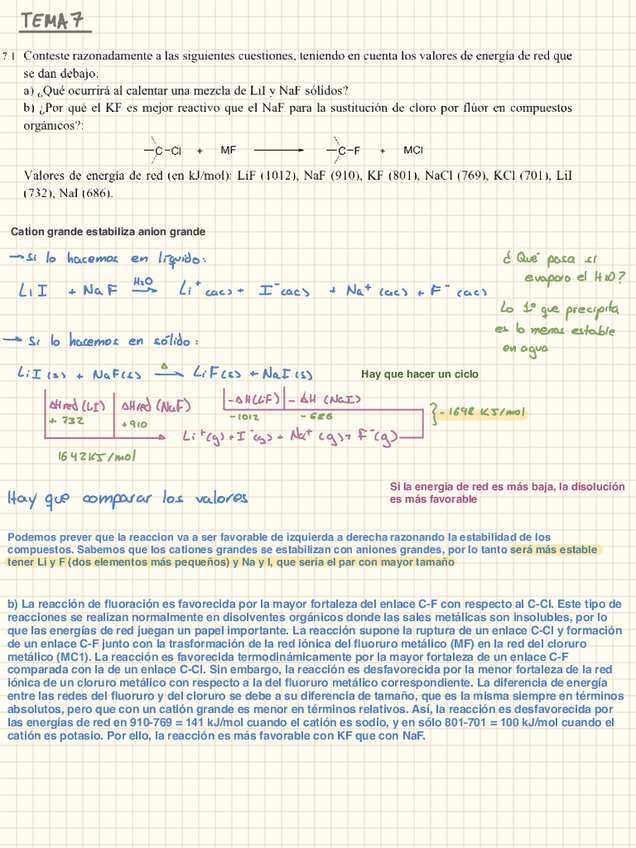 TEMA 7
7.1 Conteste razonadamente a las siguientes cuestiones, teniendo en cuenta los valores de energía de red que
se dan debajo.
a) ¿Qué ocurrirá al calentar una mezcla de LiI y NaF sólidos?
b) ¿Por qué el KF es mejor reactivo que el NaF para la sustitución de cloro por flúor en compuestos
orgánicos?:
C-Cl + MF → C-F + MCl
Valores de energía de red (en kJ/mol): LiF (1012), NaF (910), KF (801), NaCl (769), KCl (701), LiI
(732), NaI (686).
Cation grande estabiliza anion grande
→ Si lo hacemos en líquido:
LiI + NaF →H2O Li+ (ac) + I- (ac) + Na+ (ac) + F- (ac)
¿ Qué pasa si
evaporo el H2O?
Lo 1º que precipita
es lo menos estable
en agua
→ Si lo hacemos en sólido:
LiI(s) + NaF(s) →Δ LiF(s) + NaI(s)
Hay que hacer un ciclo
ΔHred (LI) ΔHred (NaF) -ΔH(LiF) - ΔH (NaI)
+ 732 +910 -1012 - 686
} - 1698 KJ/mol
Li+(g) + I-(g) + Na+(g) + F-(g)
1642KJ/mol
Hay que comparar los valores
Si la energia de red es más baja, la disolución
es más favorable
Podemos prever que la reaccion va a ser favorable de izquierda a derecha razonando la estabilidad de los
compuestos. Sabemos que los cationes grandes se estabilizan con aniones grandes, por lo tanto será más estable
tener Li y F (dos elementos más pequeños) y Na y I, que sería el par con mayor tamaño
b) La reacción de fluoración es favorecida por la mayor fortaleza del enlace C-F con respecto al C-Cl. Este tipo de
reacciones se realizan normalmente en disolventes orgánicos donde las sales metálicas son insolubles, por lo
que las energías de red juegan un papel importante. La reacción supone la ruptura de un enlace C-Cl y formación
de un enlace C-F junto con la trasformación de la red iónica del fluoruro metálico (MF) en la red del cloruro
metálico (MC1). La reacción es favorecida termodinámicamente por la mayor fortaleza de un enlace C-F
comparada con la de un enlace C-Cl. Sin embargo, la reacción es desfavorecida por la menor fortaleza de la red
iónica de un cloruro metálico con respecto a la del fluoruro metálico correspondiente. La diferencia de energía
entre las redes del fluoruro y del cloruro se debe a su diferencia de tamaño, que es la misma siempre en términos
absolutos, pero que con un catión grande es menor en términos relativos. Así, la reacción es desfavorecida por
las energías de red en 910-769 = 141 kJ/mol cuando el catión es sodio, y en sólo 801-701 = 100 kJ/mol cuando el
catión es potasio. Por ello, la reacción es más favorable con KF que con NaF.